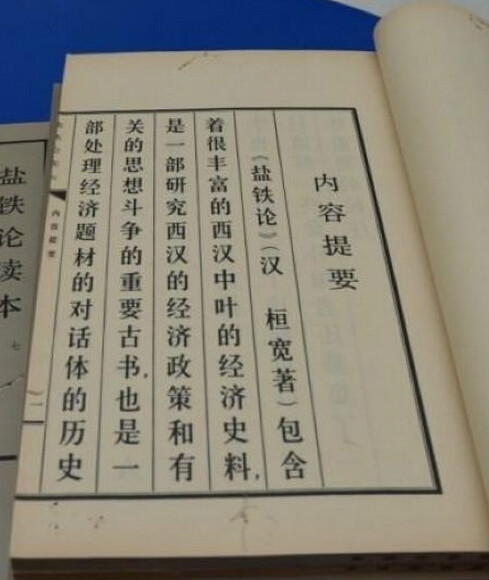 内容提要
《盐铁论》（汉 桓宽著）包含
着很丰富的西汉中叶的经济史料，
是一部研究西汉的经济政策和有
关的思想斗争的重要古书，也是一
部处理经济题材的对话体的历史
内容提要
一
盐铁论读本
七